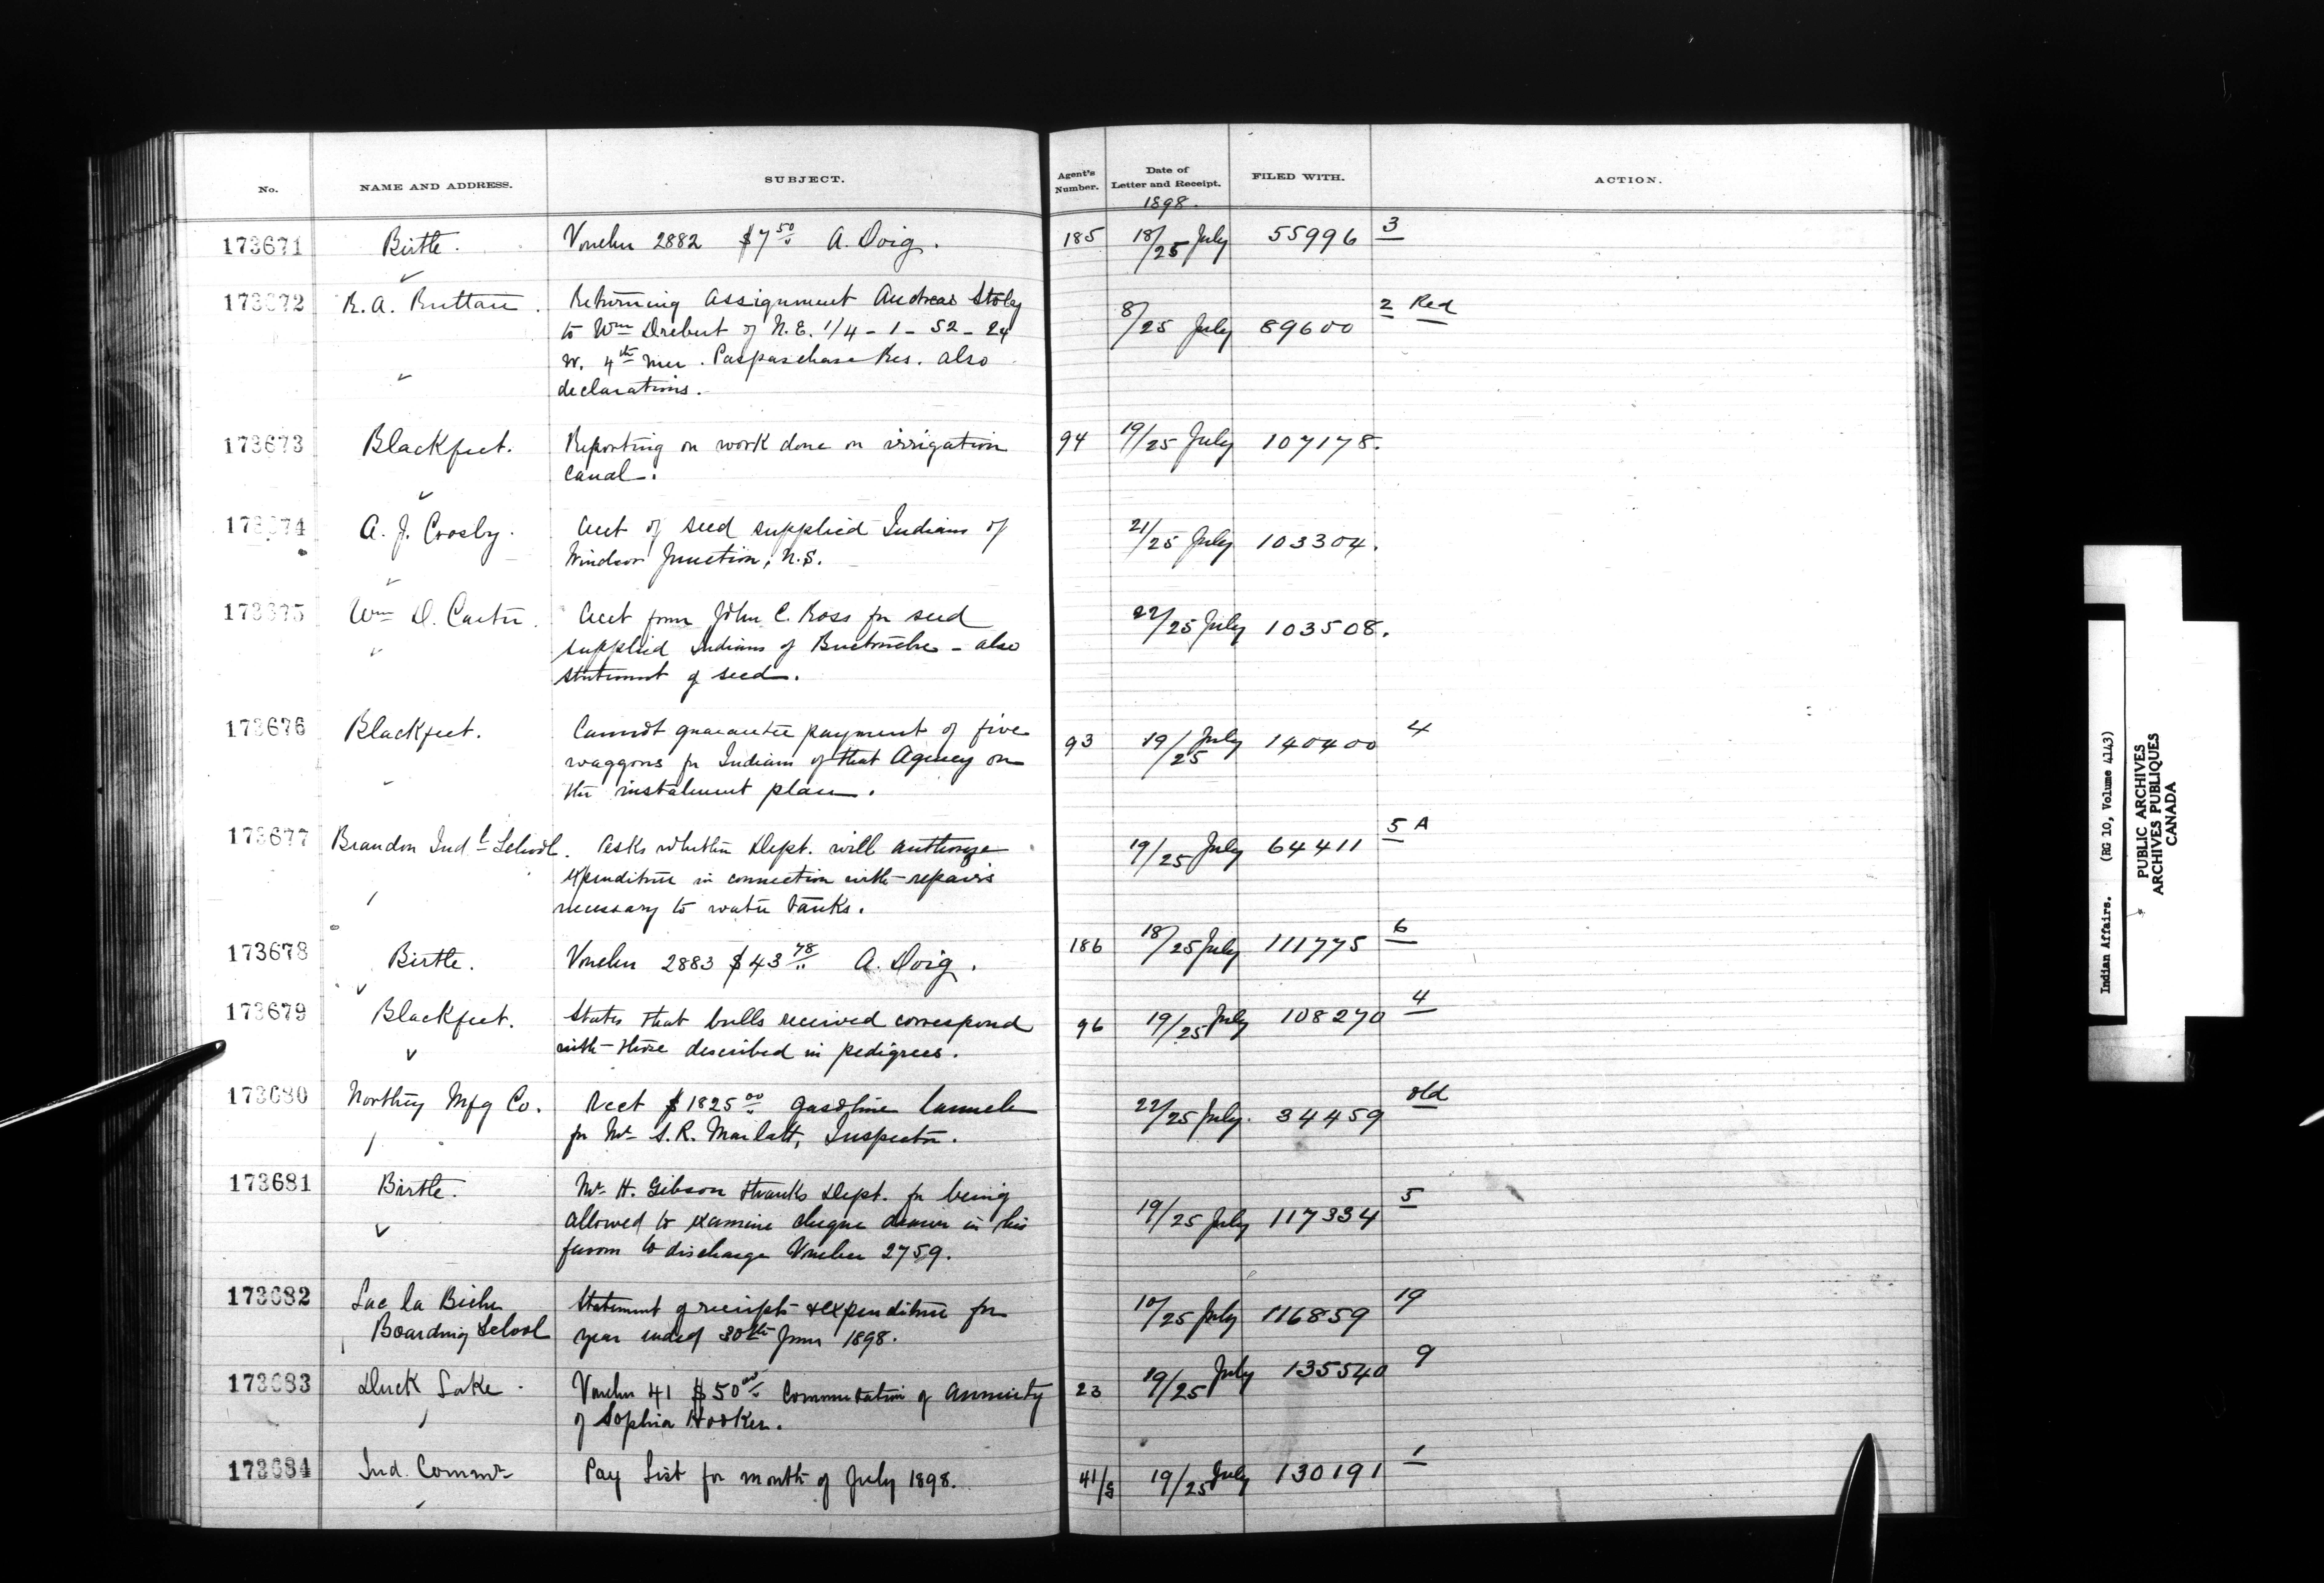 No. NAME AND ADDRESS. SUBJECT. Agent's Number. Date of Letter and Receipt. FILED WITH. ACTION.
1898.
173671 Birtle. Voucher 2882 $7 50 A. Doig. 185 18/25 July 55996 3
173672 R.A. Ruttan. Returning assignment Andreas Stoley 8/25 July 89600 2 Red
to Wm Drebert of N.E. 1/4 - 1 - 52 - 24
W. 4th Mer. Paspaschase Res. also
declarations.
173673 Blackfeet. Reporting on work done on irrigation 94 19/25 July 107178.
canal.
173674 A. J. Crosby. Acct of seed supplied Indians of 21/25 July 103304.
Windsor Junction, N.S.
173675 Wm D. Carter. Acct from John C. Ross for seed 22/25 July 103508.
supplied Indians of Buctouche - also
statement of seed.
173676 Blackfeet. Cannot guarantee payment of five 93 19/25 July 140400 4
waggons for Indians of that Agency on
the instalment plan.
173677 Brandon Indl School. Asks whether Dept. will authorize 19/25 July 64411 5 A
expenditure in connection with repairs
necessary to water tanks.
173678 Birtle. Voucher 2883 $43 78 A. Doig. 186 18/25 July 111775 6
173679 Blackfeet. States that bulls received correspond 96 19/25 July 108270 4
with those described in pedigrees.
173680 Northey Mfg Co. Rect $1825 00 gasoline launch 22/25 July. 34459 old
for Mr S.R. Marlatt, Inspector.
173681 Birtle. Mr H. Gibson thanks Dept. for being 19/25 July 117334 5
allowed to examine cheque drawn in his
favour to discharge Voucher 2759.
173682 Lac la Biche Statement of receipts & expenditure for 10/25 July 116859 19
Boarding School year ended 30th June 1898.
173683 Duck Lake. Voucher 41 $50 00 Commutation of annuity 23 19/25 July 135540 9
of Sophia Hooker.
173684 Ind. Commr Pay List for month of July 1898. 41/5 19/25 July 130191 1
Indian Affairs. (RG 10, Volume 4143)
PUBLIC ARCHIVES
ARCHIVES PUBLIQUES
CANADA